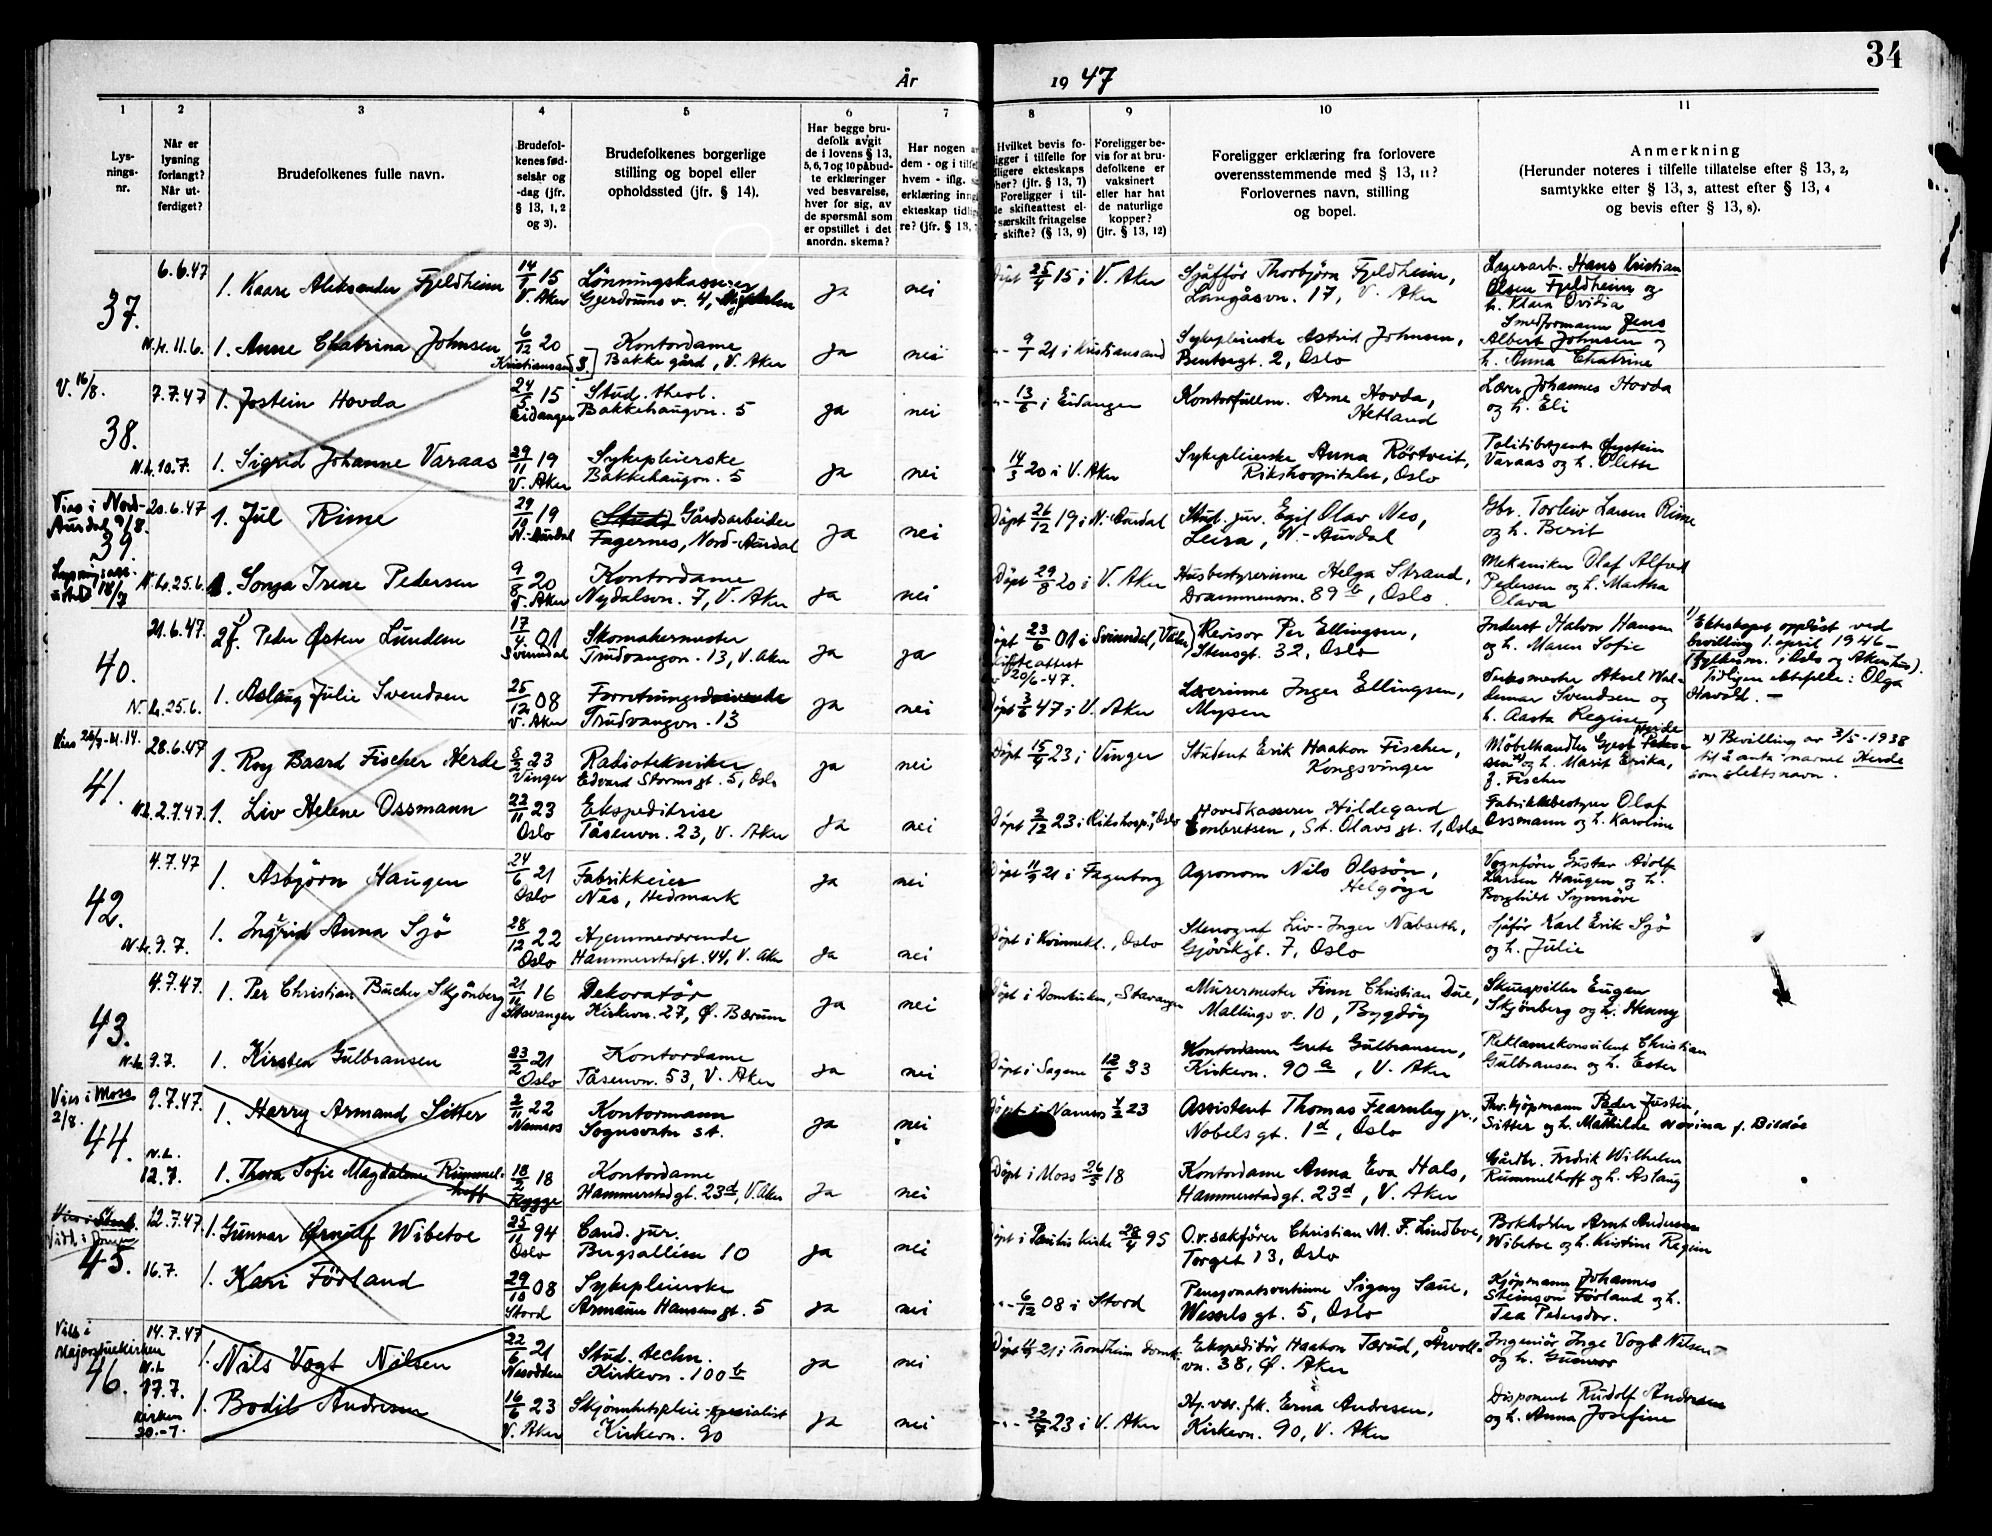 34
År 1947
1 2 3 4 5 6 7 8 9 10 11
Lys-
nings-
nr.
Når er
lysning
forlangt?
Når ut-
ferdiget?
Brudefolkenes fulle navn.
Brudefol-
kenes fød-
selsår og
-dag (jfr.
§ 13, 1, 2
og 3).
Brudefolkenes borgerlige
stilling og bopel eller
opholdssted (jfr. § 14).
Har begge bru-
defolk avgit
de i lovens § 13,
5, 6, 7 og 10 påbud-
te erklæringer
ved besvarelse,
hver for sig, av
de spørsmål som
er opstillet i det
anordn. skema?
Har nogen
dem - og i tilf
hvem - iflg.
erklæring inng
ekteskap tidlig
re? (jfr. § 13,
Hvilket bevis fo-
ligger i tilfelle for
dligere ekteskaps
hør? (jfr. § 13, 7)
Foreligger i til-
le skifteattest el-
særskilt fritagelse
skifte? (§ 13, 9)
Foreligger be-
vis for at bru-
defolkene er
vaksinert
eller har hat
de naturlige
kopper?
(jfr. § 13, 12)
Foreligger erklæring fra forlovere
overensstemmende med § 13, 11?
Forlovernes navn, stilling
og bopel.
Anmerkning
(Herunder noteres i tilfelle tillatelse efter § 13, 2,
samtykke efter § 13, 3, attest efter § 13, 4
og bevis efter § 13, 8).
37.
6.6.47
1. Kaare Aleksander Fjeldheim
14/7 15
V. Aker
Lönningskasserer
Gjerdrums v. 4,
ja nei
25/4 15 i V. Aker
Sjåfför Thorbjörn Fjeldheim,
Langåsvn. 17, V. Aker
Lagerarb. Hans Kristian
Olsen Fjeldheim og
h. Klara Ovidia
N.h. 11.6.
1. Anne Chatrina Johnsen
6/12 20
Kristiansand S.
Kontordame
Bakke gård, V. Aker
ja nei
9/1 21 i Kristiansand
Sykepleierske Astrid Johnsen,
Bentsegt. 2, Oslo
Smedformann Jens
Albert Johnsen og
h. Anna Chatrine
V. 16/8.
38.
7.7.47
1. Jostein Hovda
24/5 15
Eidanger
Stud. theol.
Bakkehaugvn. 5
ja nei
13/6 i Eidanger
Kontorfullm. Arne Hovda,
Hetland
Lærer Johannes Hovda
og h. Eli
N.h. 10.7.
1. Sigrid Johanne Varaas
29/11 19
V. Aker
Sykepleierske
Bakkehaugvn. 5
ja nei
14/3 20 i V. Aker
Sykepleierske Anna Röstveit,
Rikshospitalet, Oslo
Politibetjent Øystein
Varaas og h. Olette
Vies i Nord-
Aurdal 9/8.
39.
20.6.47
1. Jul Rime
29/10 19
N.-Aurdal
Stud. Gårdsarbeider
Fagernes, Nord-Aurdal
ja nei
Döpt 26/12 19 i N.-Aurdal
Stud. jur. Egil Olav Nes,
Leira, N.-Aurdal
Gbr. Torleiv Larsen Rime
og h. Berit
N.h. 25.6.
1. Sonja Irene Pedersen
9/8 20
V. Aker
Kontordame
Nydalsvn. 7, V. Aker
ja nei
Döpt 29/8 20 i V. Aker
Husbestyrerinne Helga Strand,
Drammensvn. 89 b, Oslo
Mekaniker Olaf Alfred
Pedersen og h. Martha
Olava
40.
21.6.47.
2 f. Peder Østen Lundem
17/4 01
Svinndal
Skomakermester
Trudvangvn. 13, V. Aker
ja ja
Döpt 23/6 01 i Svinndal, Våler
Skifteattest
20/6-47.
Revisor Per Ellingsen,
Stensgt. 32, Oslo
Inderst Halvor Hansen
og h. Maren Sofie
1) Ekteskapet opplöst ved
bevilling 1. april 1946 –
(fylkesm. i Oslo og Akershus).
Tidligere ektefelle: Olga
N.h. 25.6.
1. Aslaug Julie Svendsen
25/12 08
V. Aker
Forretningsdrivende
Trudvangvn. 13
ja nei
Döpt 3/6 47 i V. Aker
Lærerinne Inger Ellingsen,
Mysen
Verksmester Aksel Wal-
demar Svendsen og
h. Aasta Regine
41.
28.6.47
1. Roy Baard Fischer Herde
23
Vinger
Radiotekniker
Edvard Storms gt. 5, Oslo
ja nei
Döpt 15/4 23 i Vinger
Student Erik Haakon Fischer,
Kongsvinger
Herde
Möbelhandler Gjest Peder-
sen x) og h. Marit Erika,
f. Fischer
x) Bevilling av 3/5-1938
til å anta navnet Herde
som slektsnavn.
N.h. 2.7.47.
1. Liv Helene Ossmann
22/11 23
Oslo
Ekspeditrise
Tåsenvn. 23, V. Aker
ja nei
Döpt 2/12 23 i Rikshosp., Oslo
Hovedkasserer Hildegard
Embretsen, St. Olavs gt. 1, Oslo
Fabrikkbestyrer Olaf
Ossmann og h. Karoline
42.
4.7.47
1. Asbjörn Haugen
24/6 21
Oslo
Fabrikkeier
Nes, Hedmark
ja nei
Döpt 11/9 21 i Fagerborg
Agronom Nils Olssön,
Helgöya
Vognförer Gustav Adolf
Larsen Haugen og h.
Borghild Synnöve
N.h. 9.7.
1. Ingrid Anna Sjö
28/12 22
Oslo
Hjemmeværende
Hammerstadgt. 44, V. Aker
ja nei
Döpt i Kvinnekl., Oslo
Stenograf Liv-Inger Nabseth,
Gjövikgt. 7, Oslo
Sjåför Karl Erik Sjö
og h. Julie
43.
4.7.47.
1. Per Christian Bucher Skjönberg
21/11 16
Stavanger
Dekoratör
Kirkevn. 27, Ø. Bærum
ja nei
Döpt i Domkirken, Stavanger
Murermester Finn Christian Due,
Mallings v. 10, Bygdöy
Skuespiller Eugen
Skjönberg og h. Henny
N.h. 9.7.
1. Kirsten Gulbransen
23/2 21
Oslo
Kontordame
Tåsenvn. 53, V. Aker
ja nei
Döpt i Sagene 12/6 33
Kontordame Grete Gulbransen,
Kirkevn. 90 a, V. Aker
Reklamekonsulent Christian
Gulbransen og h. Ester
Vies i Moss
2/8.
44.
9.7.47.
1. Harry Armand Sitter
2/11 22
Namsos
Kontormann
Sognsvatn st.
ja nei
Döpt i Namsos 23
Assistent Thomas Fearnley jr.,
Nobels gt. 1 d, Oslo
Fhv. kjöpmann Peder Justin
Sitter og h. Mathilde Novina f. Bildöe
N.h.
12.7.
1. Thora Sofie Magdalene Rummel-
hoff
18/2 18
Rygge
Kontordame
Hammerstadgt. 23 d, V. Aker
ja nei
Döpt i Moss 26/5 18
Kontordame Anna Eva Hals,
Hammerstadgt. 23 d, V. Aker
Gårdbr. Fredrik Wilhelm
Rummelhoff og h. Aslaug
45.
12.7.47
1. Gunnar Ørnulf Wibetoe
25/11 94
Oslo
Cand. jur.
Bergsalléen 10
ja nei
Döpt i Paulus kirke 28/4 95
O.r.sakförer Christian M. F. Lindboe,
Torget 13, Oslo
Bokholder Arnt Andersen
Wibetoe og h. Kristine Regine
16.7.
1. Kari Förland
29/10 08
Stord
Sykepleierske
Armauer Hansens gt. 5
ja nei
6/12 08 i Stord
Pensjonatsvertinne Signy Saue,
Wessels gt. 5, Oslo
Kjöpmann Johannes
Steinson Förland og h.
Tea Pedersdtr.
Vies i
Majorstuekirken
46.
14.7.47
N.h.
17.7.
1. Nils Vogt Nilsen
22/6 21
Nesodden
Stud. techn.
Kirkevn. 100 b
ja nei
Döpt 21 i Trondheim domk.
Ekspeditör Haakon Tærud, Årvoll-
vn. 38, Ø. Aker
Ingeniör Inge Vogt Nilsen
og h. Gunvor
kirken
30.-7.
1. Bodil Andresen
16/6 23
V. Aker
Skjönnhetspleie-spesialist
Kirkevn. 90
ja nei
22/7 23 i V. Aker
Hj.vær. frk. Erna Andresen,
Kirkevn. 90, V. Aker
Disponent Rudolf Andresen
og h. Anna Josefine